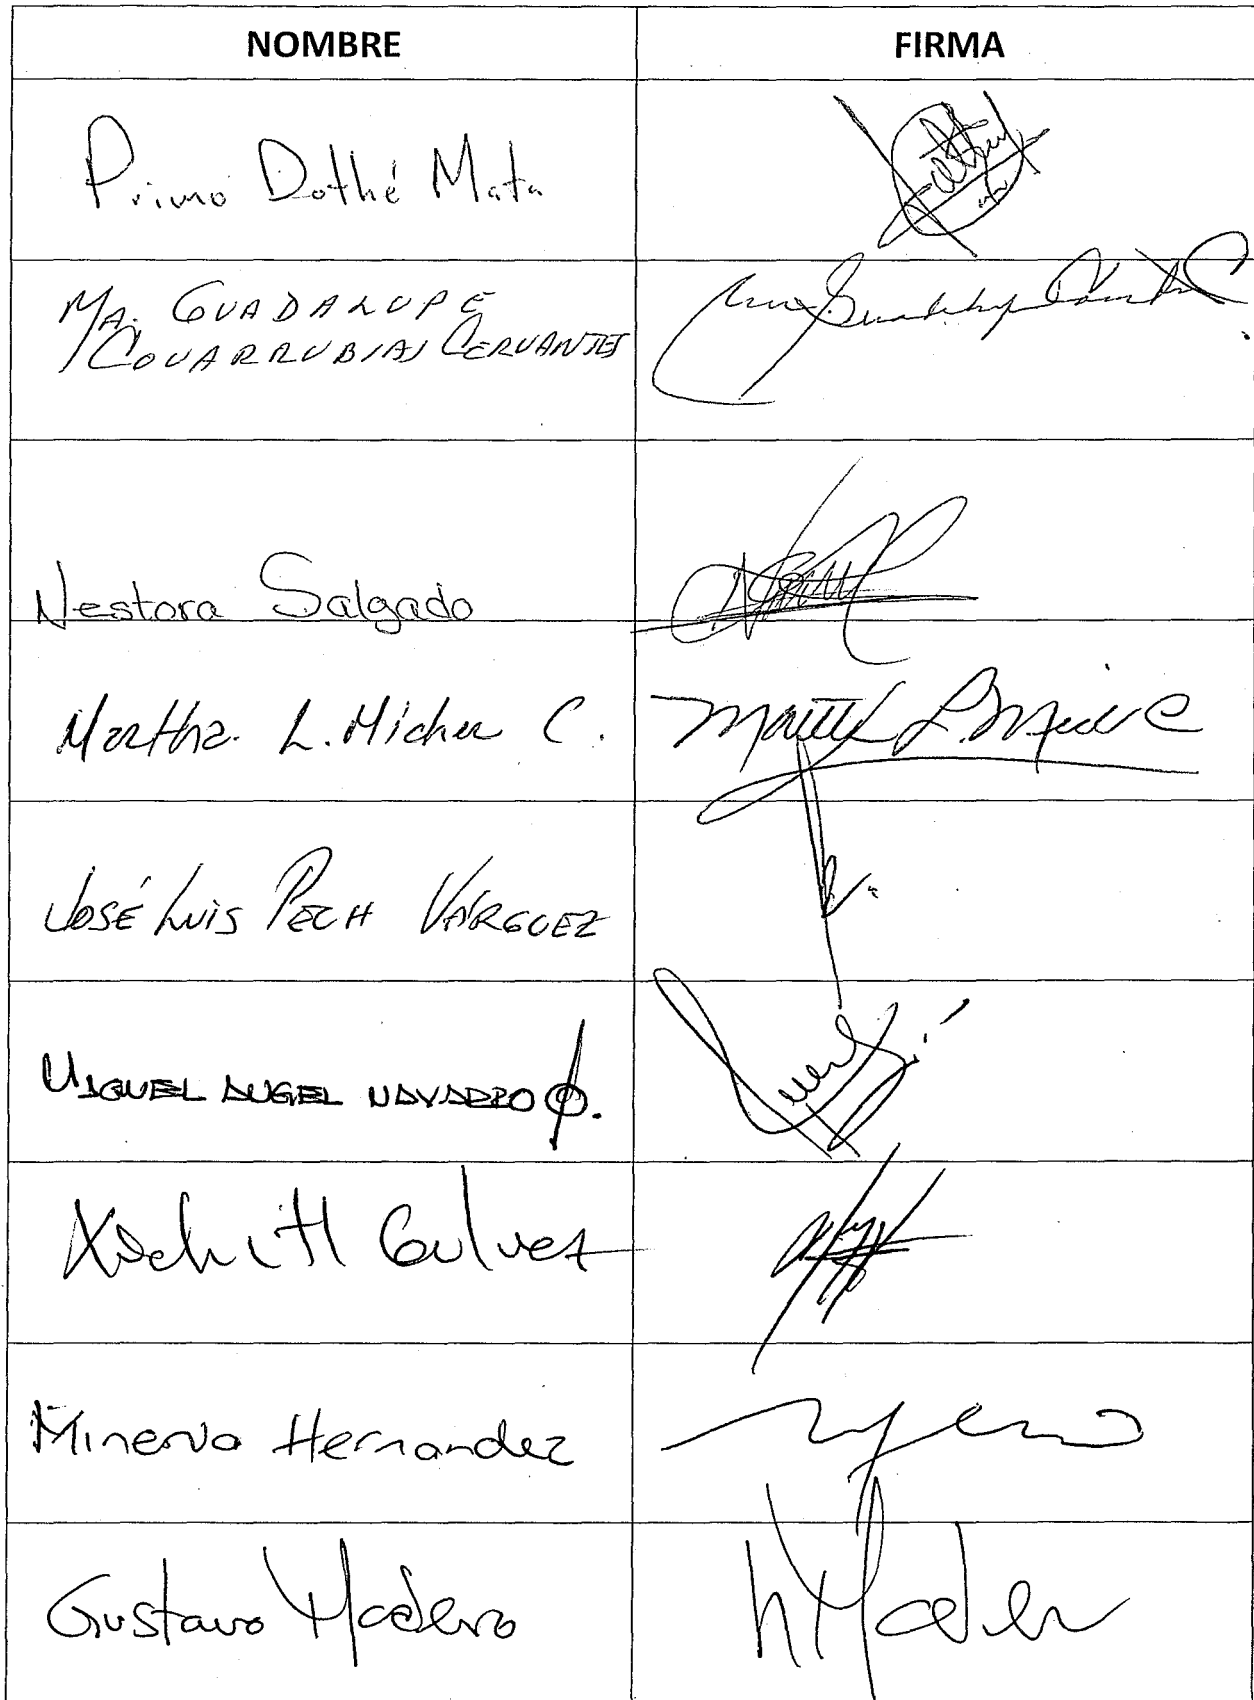 NOMBRE FIRMA
Primo Dothé Mata
MA. GUADALUPE
COVARRUBIAS CERVANTES
Nestora Salgado
Martha L. Micher C. Martha L. Micher C
JOSÉ LUIS PECH VÁRGUEZ
MIGUEL ANGEL NAVARRO Q.
Xóchitl Galvez
Minerva Hernandez
Gustavo Madero Madero